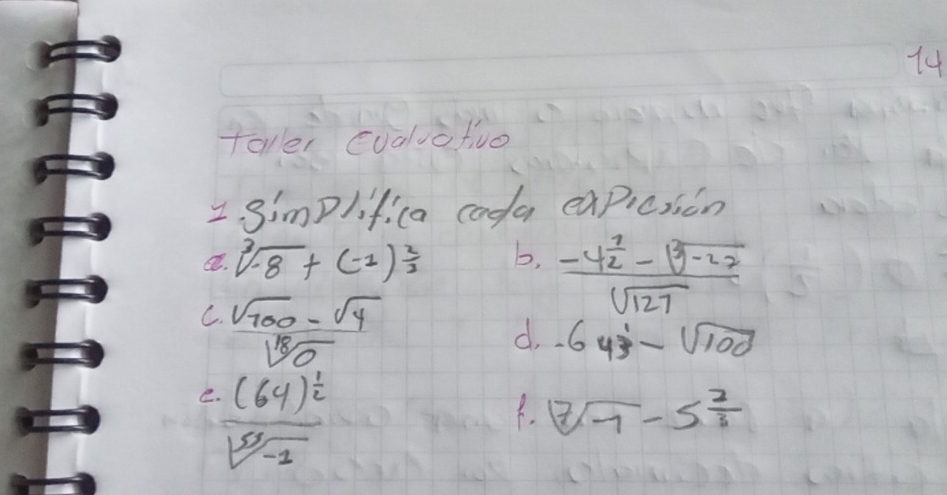 14
Taller Evaluativo
1. Simplifica cada expicsión
a. ∛-8 + (-1)^(2/3) b. (-4^(1/2) - ∛-27) / √127
c. (√100 - √4) / ¹⁸√0 d. -64^(1/3) - √100
e. (64)^(1/2) / ⁵⁵√-1 f. ⁷√-1 - 5^(2/3)